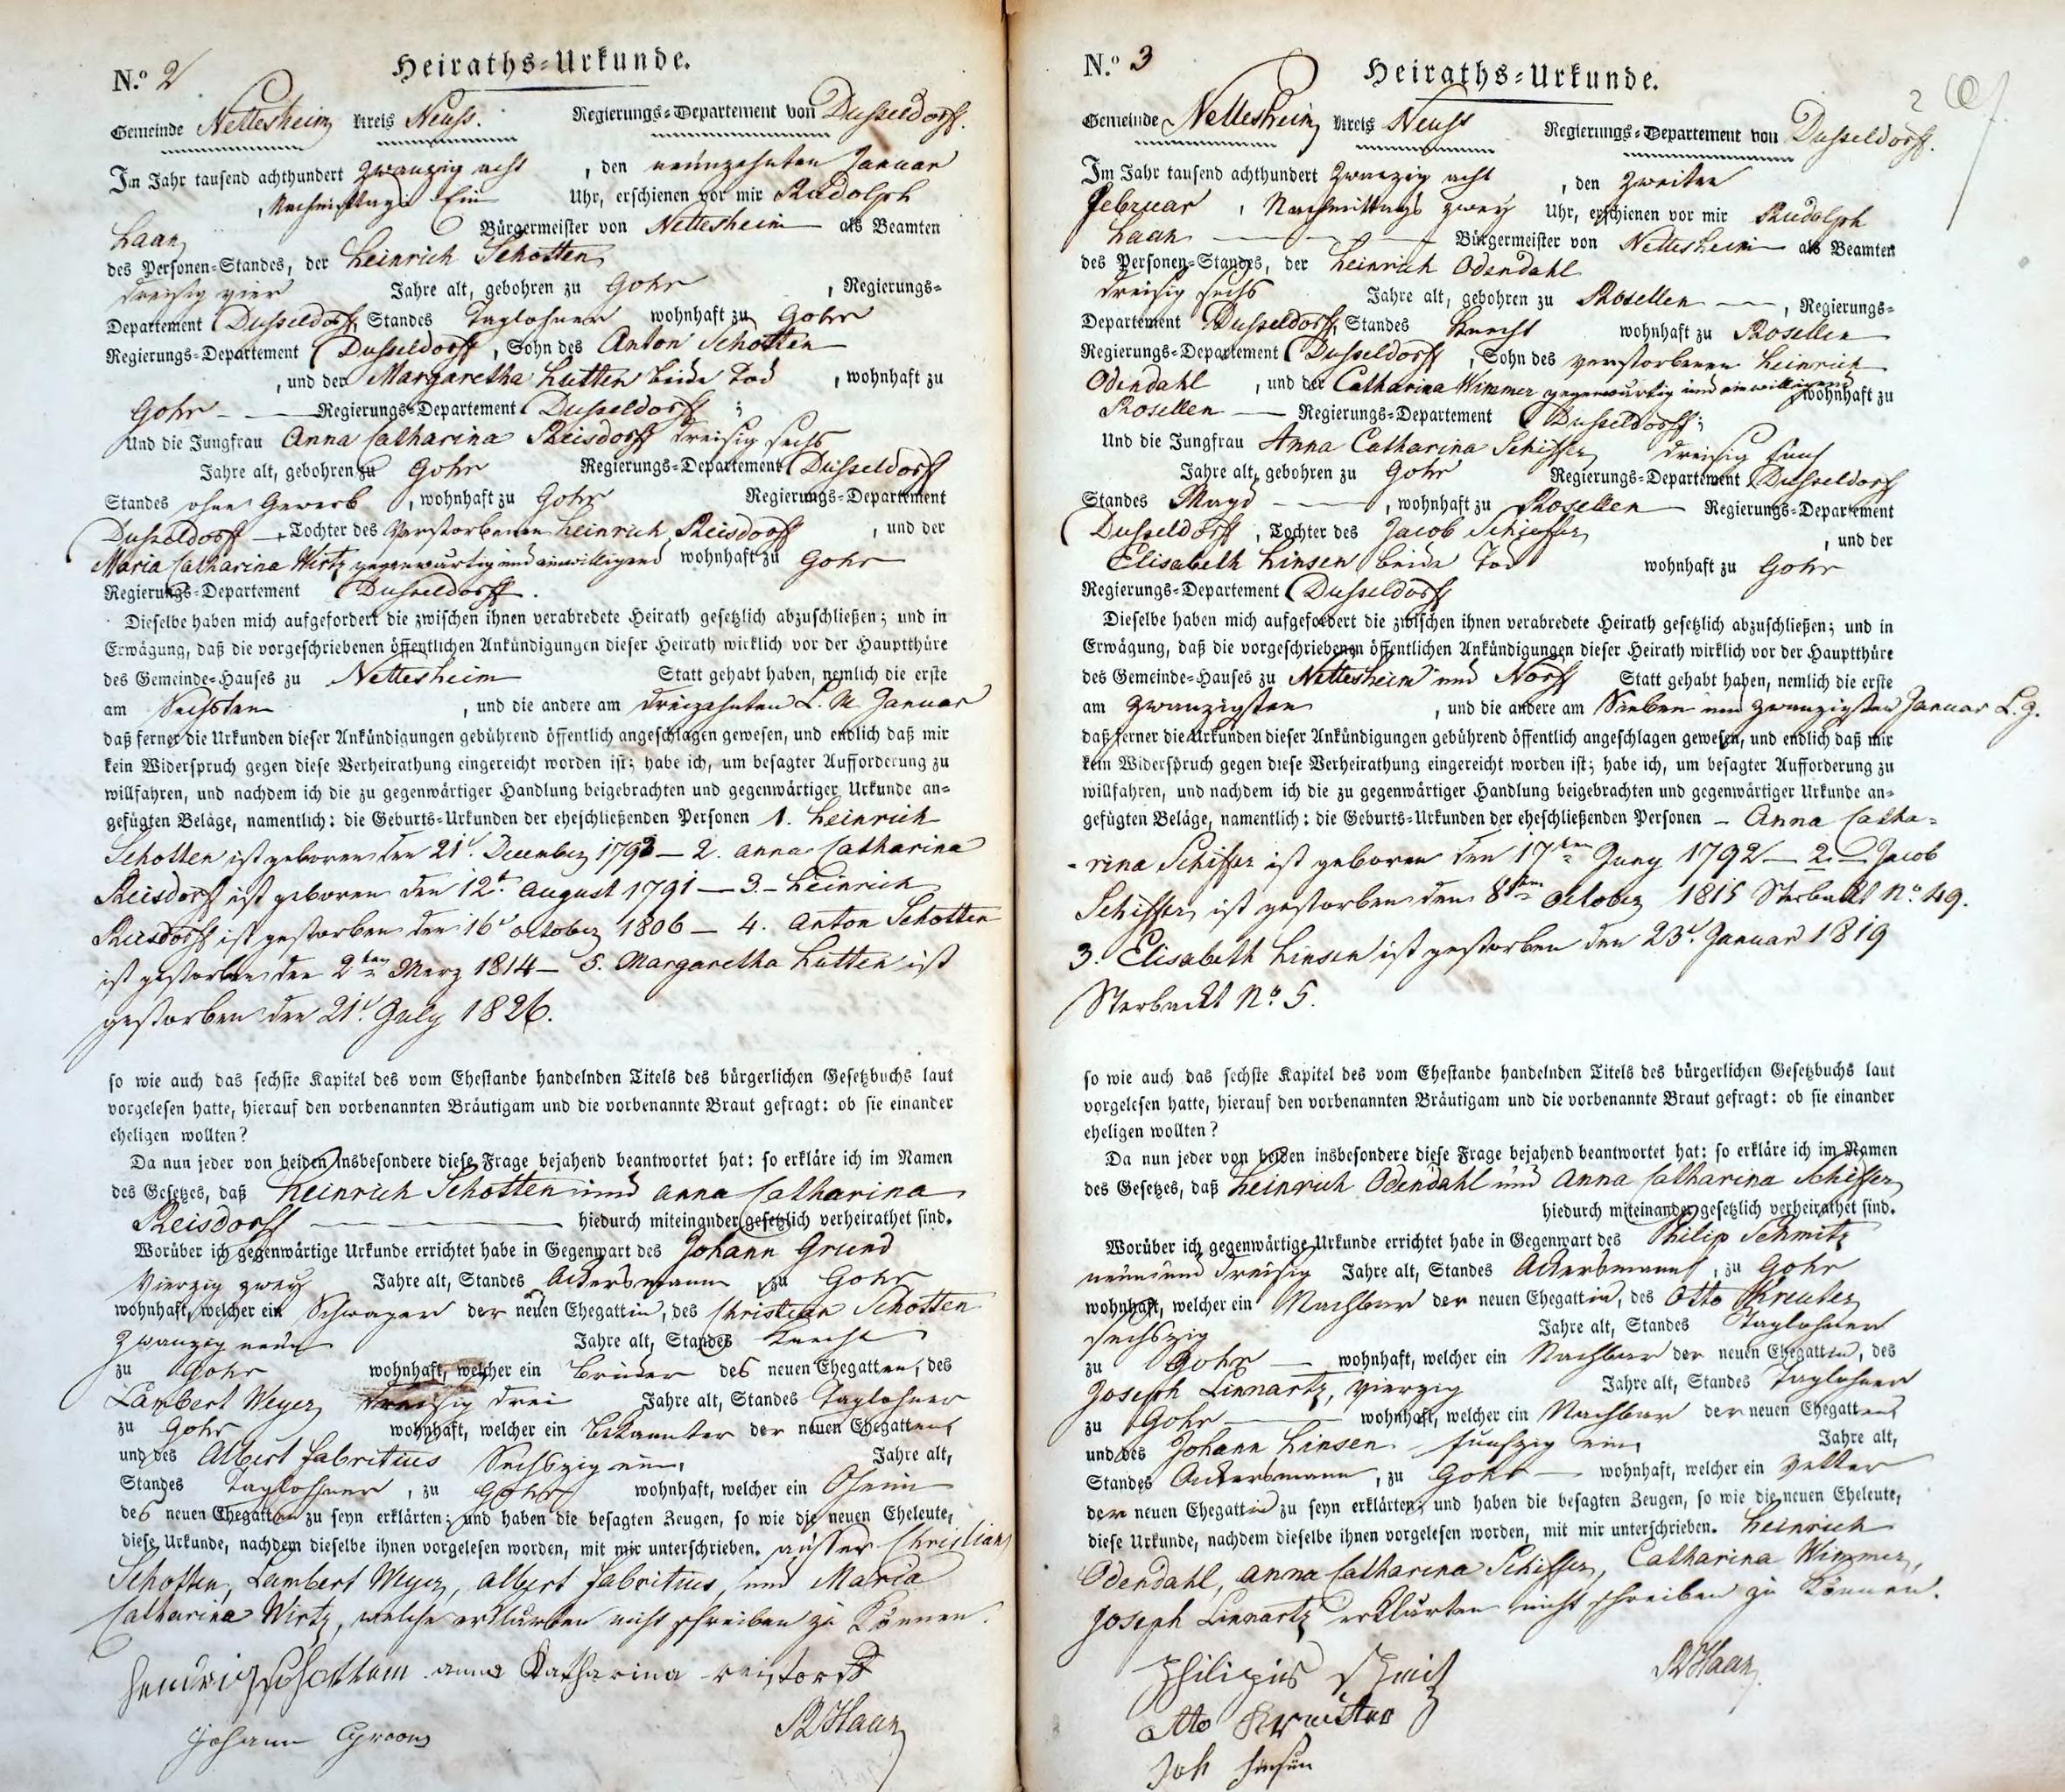 N.º 2
Heiraths-Urkunde.
Gemeinde Nettesheim Kreis Neuss. Regierungs-Departement von Dusseldorff.
Im Jahr tausend achthundert zwanzig acht , den neunzehnten Januar
, Nachmittags Ein Uhr, erschienen vor mir Rudolph
Haan Bürgermeister von Nettesheim als Beamten
des Personen-Standes, der Heinrich Schotten
dreisig vier Jahre alt, gebohren zu Gohr , Regierungs-
Departement Dusseldorff, Standes Taglohner wohnhaft zu Gohr
Regierungs-Departement Dusseldorff , Sohn des Anton Schotten
, und der Margaretha Lutten beide Tod , wohnhaft zu
Gohr Regierungs-Departement Dusseldorff ;
Und die Jungfrau Anna Catharina Reisdorff dreisig sechs
Jahre alt, gebohren zu Gohr Regierungs-Departement Dusseldorff
Standes ohne Gewerb , wohnhaft zu Gohr Regierungs-Departement
Dusseldorff , Tochter des Verstorbenen Heinrich Reisdorff , und der
Maria Catharina Wirtz gegenwärtig und einwilligend wohnhaft zu Gohr
Regierungs-Departement Dusseldorff.
Dieselbe haben mich aufgefordert die zwischen ihnen verabredete Heirath gesetzlich abzuschließen; und in
Erwägung, daß die vorgeschriebenen öffentlichen Ankündigungen dieser Heirath wirklich vor der Hauptthüre
des Gemeinde-Hauses zu Nettesheim Statt gehabt haben, nemlich die erste
am Sechsten , und die andere am dreizehnten L. M. Januar
daß ferner die Urkunden dieser Ankündigungen gebührend öffentlich angeschlagen gewesen, und endlich daß mir
kein Widerspruch gegen diese Verheirathung eingereicht worden ist; habe ich, um besagter Aufforderung zu
willfahren, und nachdem ich die zu gegenwärtiger Handlung beigebrachten und gegenwärtiger Urkunde an-
gefügten Beläge, namentlich: die Geburts-Urkunden der eheschließenden Personen 1. Heinrich
Schotten ist geboren den 21t. December 1793 – 2. Anna Catharina
Reisdorff ist geboren den 12t. August 1791 – 3. – Heinrich
Reisdorff ist gestorben den 16t October 1806 – 4. Anton Schotten
ist gestorben den 2ten Merz 1814 – 5. Margaretha Lutten ist
gestorben den 21t. July 1826.
so wie auch das sechste Kapitel des vom Ehestande handelnden Titels des bürgerlichen Gesetzbuchs laut
vorgelesen hatte, hierauf den vorbenannten Bräutigam und die vorbenannte Braut gefragt: ob sie einander
eheligen wollten?
Da nun jeder von beiden insbesondere diese Frage bejahend beantwortet hat: so erkläre ich im Namen
des Gesetzes, daß Heinrich Schotten und Anna Catharina
Reisdorff hiedurch miteinander gesetzlich verheirathet sind.
Worüber ich gegenwärtige Urkunde errichtet habe in Gegenwart des Johann Grund
Vierzig zwey Jahre alt, Standes Ackersmann zu Gohr
wohnhaft, welcher ein Schwager der neuen Ehegattin, des Christian Schotten
zwanzig neun Jahre alt, Standes Knecht
zu Gohr wohnhaft, welcher ein Bruder des neuen Ehegatten, des
Lambert Weyer dreisig drei Jahre alt, Standes Taglohner
zu Gohr wohnhaft, welcher ein Bekannter der neuen Ehegatten
und des Albert Fabritius Sechszig ein, Jahre alt,
Standes Taglohner , zu Gohr wohnhaft, welcher ein Oheim
des neuen Ehegatten zu seyn erklärten; und haben die besagten Zeugen, so wie die neuen Eheleute,
diese Urkunde, nachdem dieselbe ihnen vorgelesen worden, mit mir unterschrieben. ausser Christian
Schotten, Lambert Weyer, Albert Fabritius, und Maria
Catharina Wirtz, welche erklärten nicht schreiben zu können.
Hendrig Schottam anna Katharina reistorff
Johann Groons RHaan
N.º 3
Heiraths-Urkunde.
2
Gemeinde Nettesheim Kreis Neuss Regierungs-Departement von Dusseldorff.
Im Jahr tausend achthundert zwanzig acht , den zweiten
Februar , Nachmittags zwey Uhr, erschienen vor mir Rudolph
Haan Bürgermeister von Nettesheim als Beamten
des Personen-Standes, der Heinrich Odendahl
dreisig sechs Jahre alt, gebohren zu Rosellen , Regierungs-
Departement Dusseldorff, Standes Knecht wohnhaft zu Rosellen
Regierungs-Departement Dusseldorff , Sohn des verstorbenen Heinrich
Odendahl , und der Catharina Wimmer gegenwärtig und einwilligend wohnhaft zu
Rosellen Regierungs-Departement Dusseldorff;
Und die Jungfrau Anna Catharina Schiffer dreisig fünf
Jahre alt, gebohren zu Gohr Regierungs-Departement Dusseldorff
Standes Magd , wohnhaft zu Rosellen Regierungs-Departement
Dusseldorff , Tochter des Jacob Schieffer , und der
Elisabeth Linsen beide Tod wohnhaft zu Gohr
Regierungs-Departement Dusseldorff
Dieselbe haben mich aufgefordert die zwischen ihnen verabredete Heirath gesetzlich abzuschließen; und in
Erwägung, daß die vorgeschriebenen öffentlichen Ankündigungen dieser Heirath wirklich vor der Hauptthüre
des Gemeinde-Hauses zu Nettesheim und Norff Statt gehabt haben, nemlich die erste
am zwanzigsten , und die andere am Sieben und zwanzigsten Januar L. J.
daß ferner die Urkunden dieser Ankündigungen gebührend öffentlich angeschlagen gewesen, und endlich daß mir
kein Widerspruch gegen diese Verheirathung eingereicht worden ist; habe ich, um besagter Aufforderung zu
willfahren, und nachdem ich die zu gegenwärtiger Handlung beigebrachten und gegenwärtiger Urkunde an-
gefügten Beläge, namentlich: die Geburts-Urkunden der eheschließenden Personen – Anna Catha-
-rina Schiffer ist geboren den 17ten Juny 1792 – 2. – Jacob
Schiffer ist gestorben den 8ten October 1815 Sterbackt No. 49.
3. Elisabeth Linsen ist gestorben den 23t. Januar 1819
Sterbackt No 5.
so wie auch das sechste Kapitel des vom Ehestande handelnden Titels des bürgerlichen Gesetzbuchs laut
vorgelesen hatte, hierauf den vorbenannten Bräutigam und die vorbenannte Braut gefragt: ob sie einander
eheligen wollten?
Da nun jeder von beiden insbesondere diese Frage bejahend beantwortet hat: so erkläre ich im Namen
des Gesetzes, daß Heinrich Odendahl und Anna Catharina Schiffer
hiedurch miteinander gesetzlich verheirathet sind.
Worüber ich gegenwärtige Urkunde errichtet habe in Gegenwart des Philip Schmitz
neun und dreisig Jahre alt, Standes Ackersmann , zu Gohr
wohnhaft, welcher ein Nachbar der neuen Ehegattin, des Otto Kreuter
sechszig Jahre alt, Standes Taglohner
zu Gohr wohnhaft, welcher ein Nachbar der neuen Ehegattin, des
Joseph Linnartz, vierzig Jahre alt, Standes Taglohner
zu Gohr wohnhaft, welcher ein Nachbar der neuen Ehegatten
und des Johann Linsen funfzig ein, Jahre alt,
Standes Ackersmann , zu Gohr wohnhaft, welcher ein Vetter
der neuen Ehegattin zu seyn erklärten; und haben die besagten Zeugen, so wie die neuen Eheleute,
diese Urkunde, nachdem dieselbe ihnen vorgelesen worden, mit mir unterschrieben. Heinrich
Odendahl, Anna Catharina Schiffer, Catharina Wimmer,
Joseph Linnartz erklärten nicht schreiben zu können.
Philipus Schmitz RHaan
Otto Kreuter
Joh Linsen